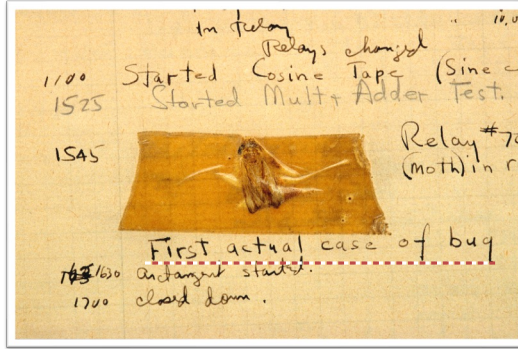 In Relay
10,0
Relays changed
1100 Started Cosine Tape (Sine c
1525 Started Mult+ Adder Test.
1545 Relay #70
(moth) in r
First actual case of bug
1630 antangent started.
1700 closed down.